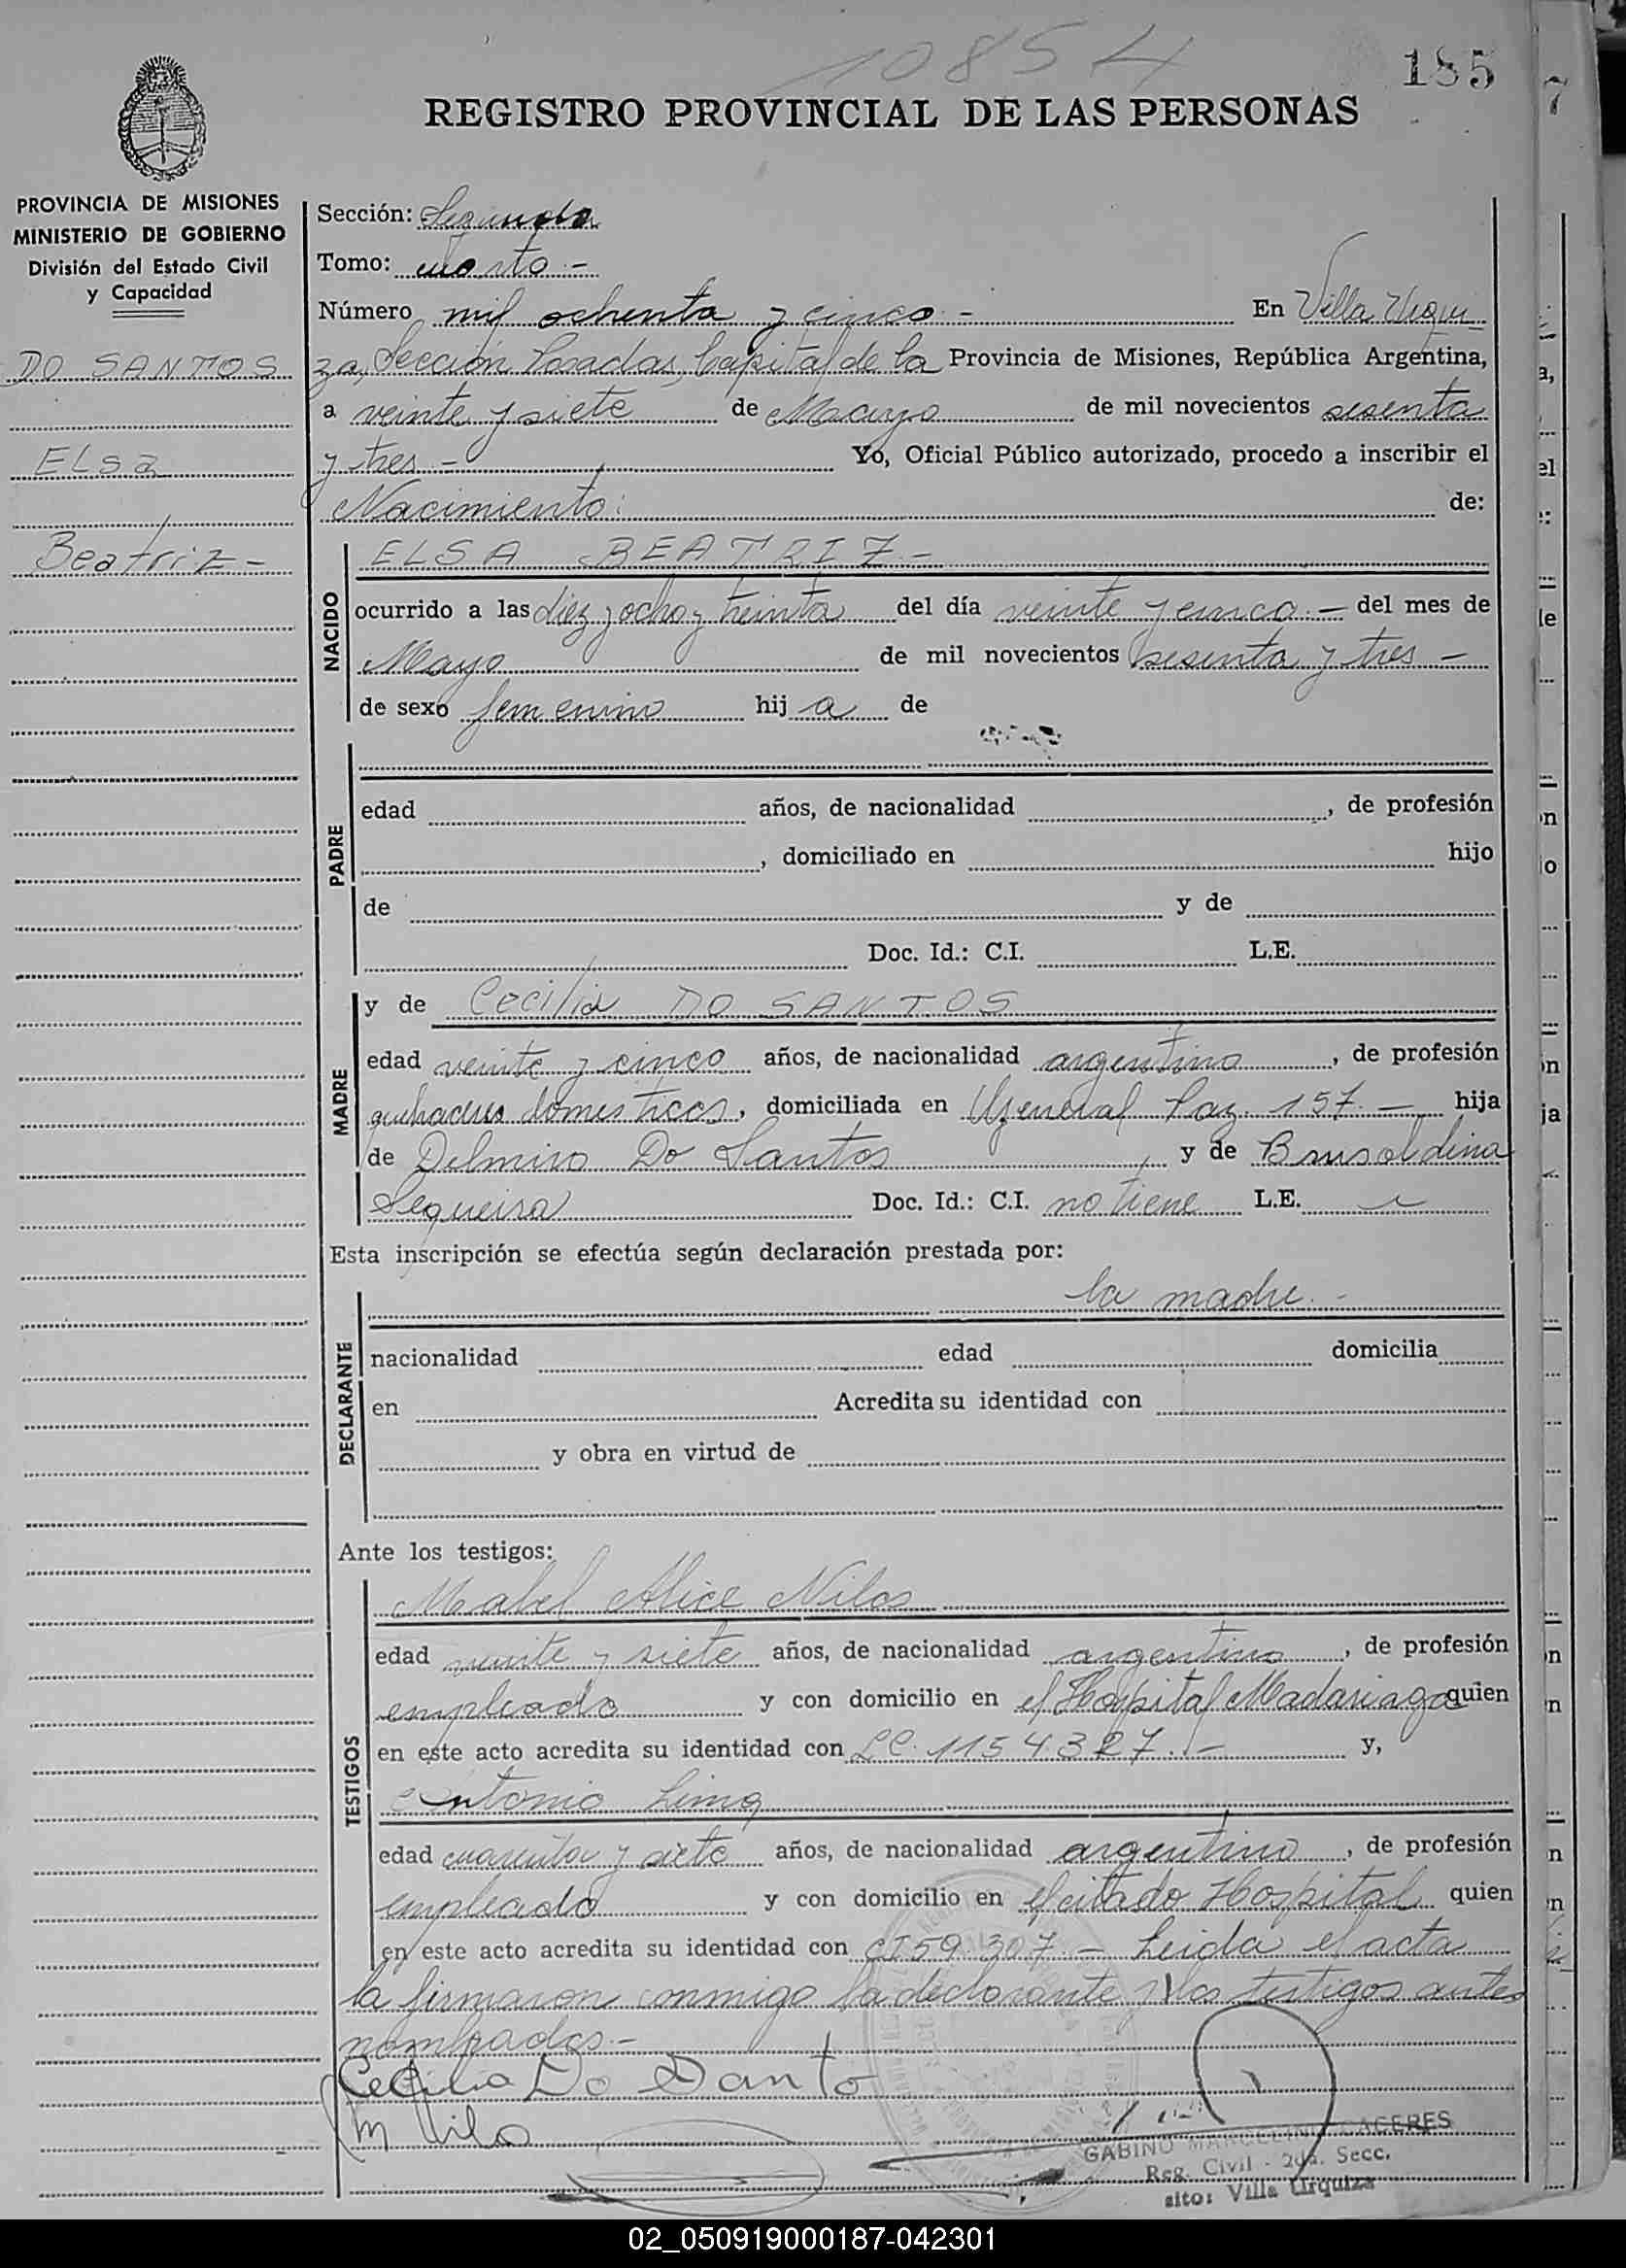 10854
185
REGISTRO PROVINCIAL DE LAS PERSONAS
PROVINCIA DE MISIONES
MINISTERIO DE GOBIERNO
División del Estado Civil
y Capacidad
DO SANTOS
ELSa
Beatriz -
Sección: Segunda
Tomo: cuarto -
Número mil ochenta y cinco - En Villa Urqui
za, Sección Posadas, Capital de la Provincia de Misiones, República Argentina,
a veinte y siete de Mayo de mil novecientos sesenta
y tres - Yo, Oficial Público autorizado, procedo a inscribir el
Nacimiento: de:
NACIDO
ELSA BEATRIZ -
ocurrido a las diez y ocho y treinta del día veinte y cinco - del mes de
Mayo de mil novecientos sesenta y tres -
de sexo femenino hij a de
PADRE
edad años, de nacionalidad , de profesión
, domiciliado en hijo
de y de
Doc. Id.: C.I. L.E.
MADRE
y de Cecilia DO SANTOS
edad veinte y cinco años, de nacionalidad argentina, de profesión
quehaceres domesticos, domiciliada en General Paz 157 - hija
de Delmiro Do Santos y de
Sequeira Doc. Id.: C.I. no tiene L.E.
Esta inscripción se efectúa según declaración prestada por:
DECLARANTE
la madre -
nacionalidad edad domicilia
en Acredita su identidad con
y obra en virtud de
Ante los testigos:
TESTIGOS
Mabel Alice Nilos
edad veinte y siete años, de nacionalidad argentina, de profesión
empleada y con domicilio en el Hospital Madariaga quien
en este acto acredita su identidad con LC. 1154327. - y,
Antonio Lima
edad cuarenta y siete años, de nacionalidad argentino, de profesión
empleado y con domicilio en el citado Hospital quien
en este acto acredita su identidad con CI 59.307 - Leida el acta
la firmaron conmigo la declarante y los testigos antes
nombrados -
Cecilia Do Santo
GABINO MARCELINO CACERES
Reg. Civil - 2da. Secc.
sito: Villa Urquiza
02_050919000187-042301